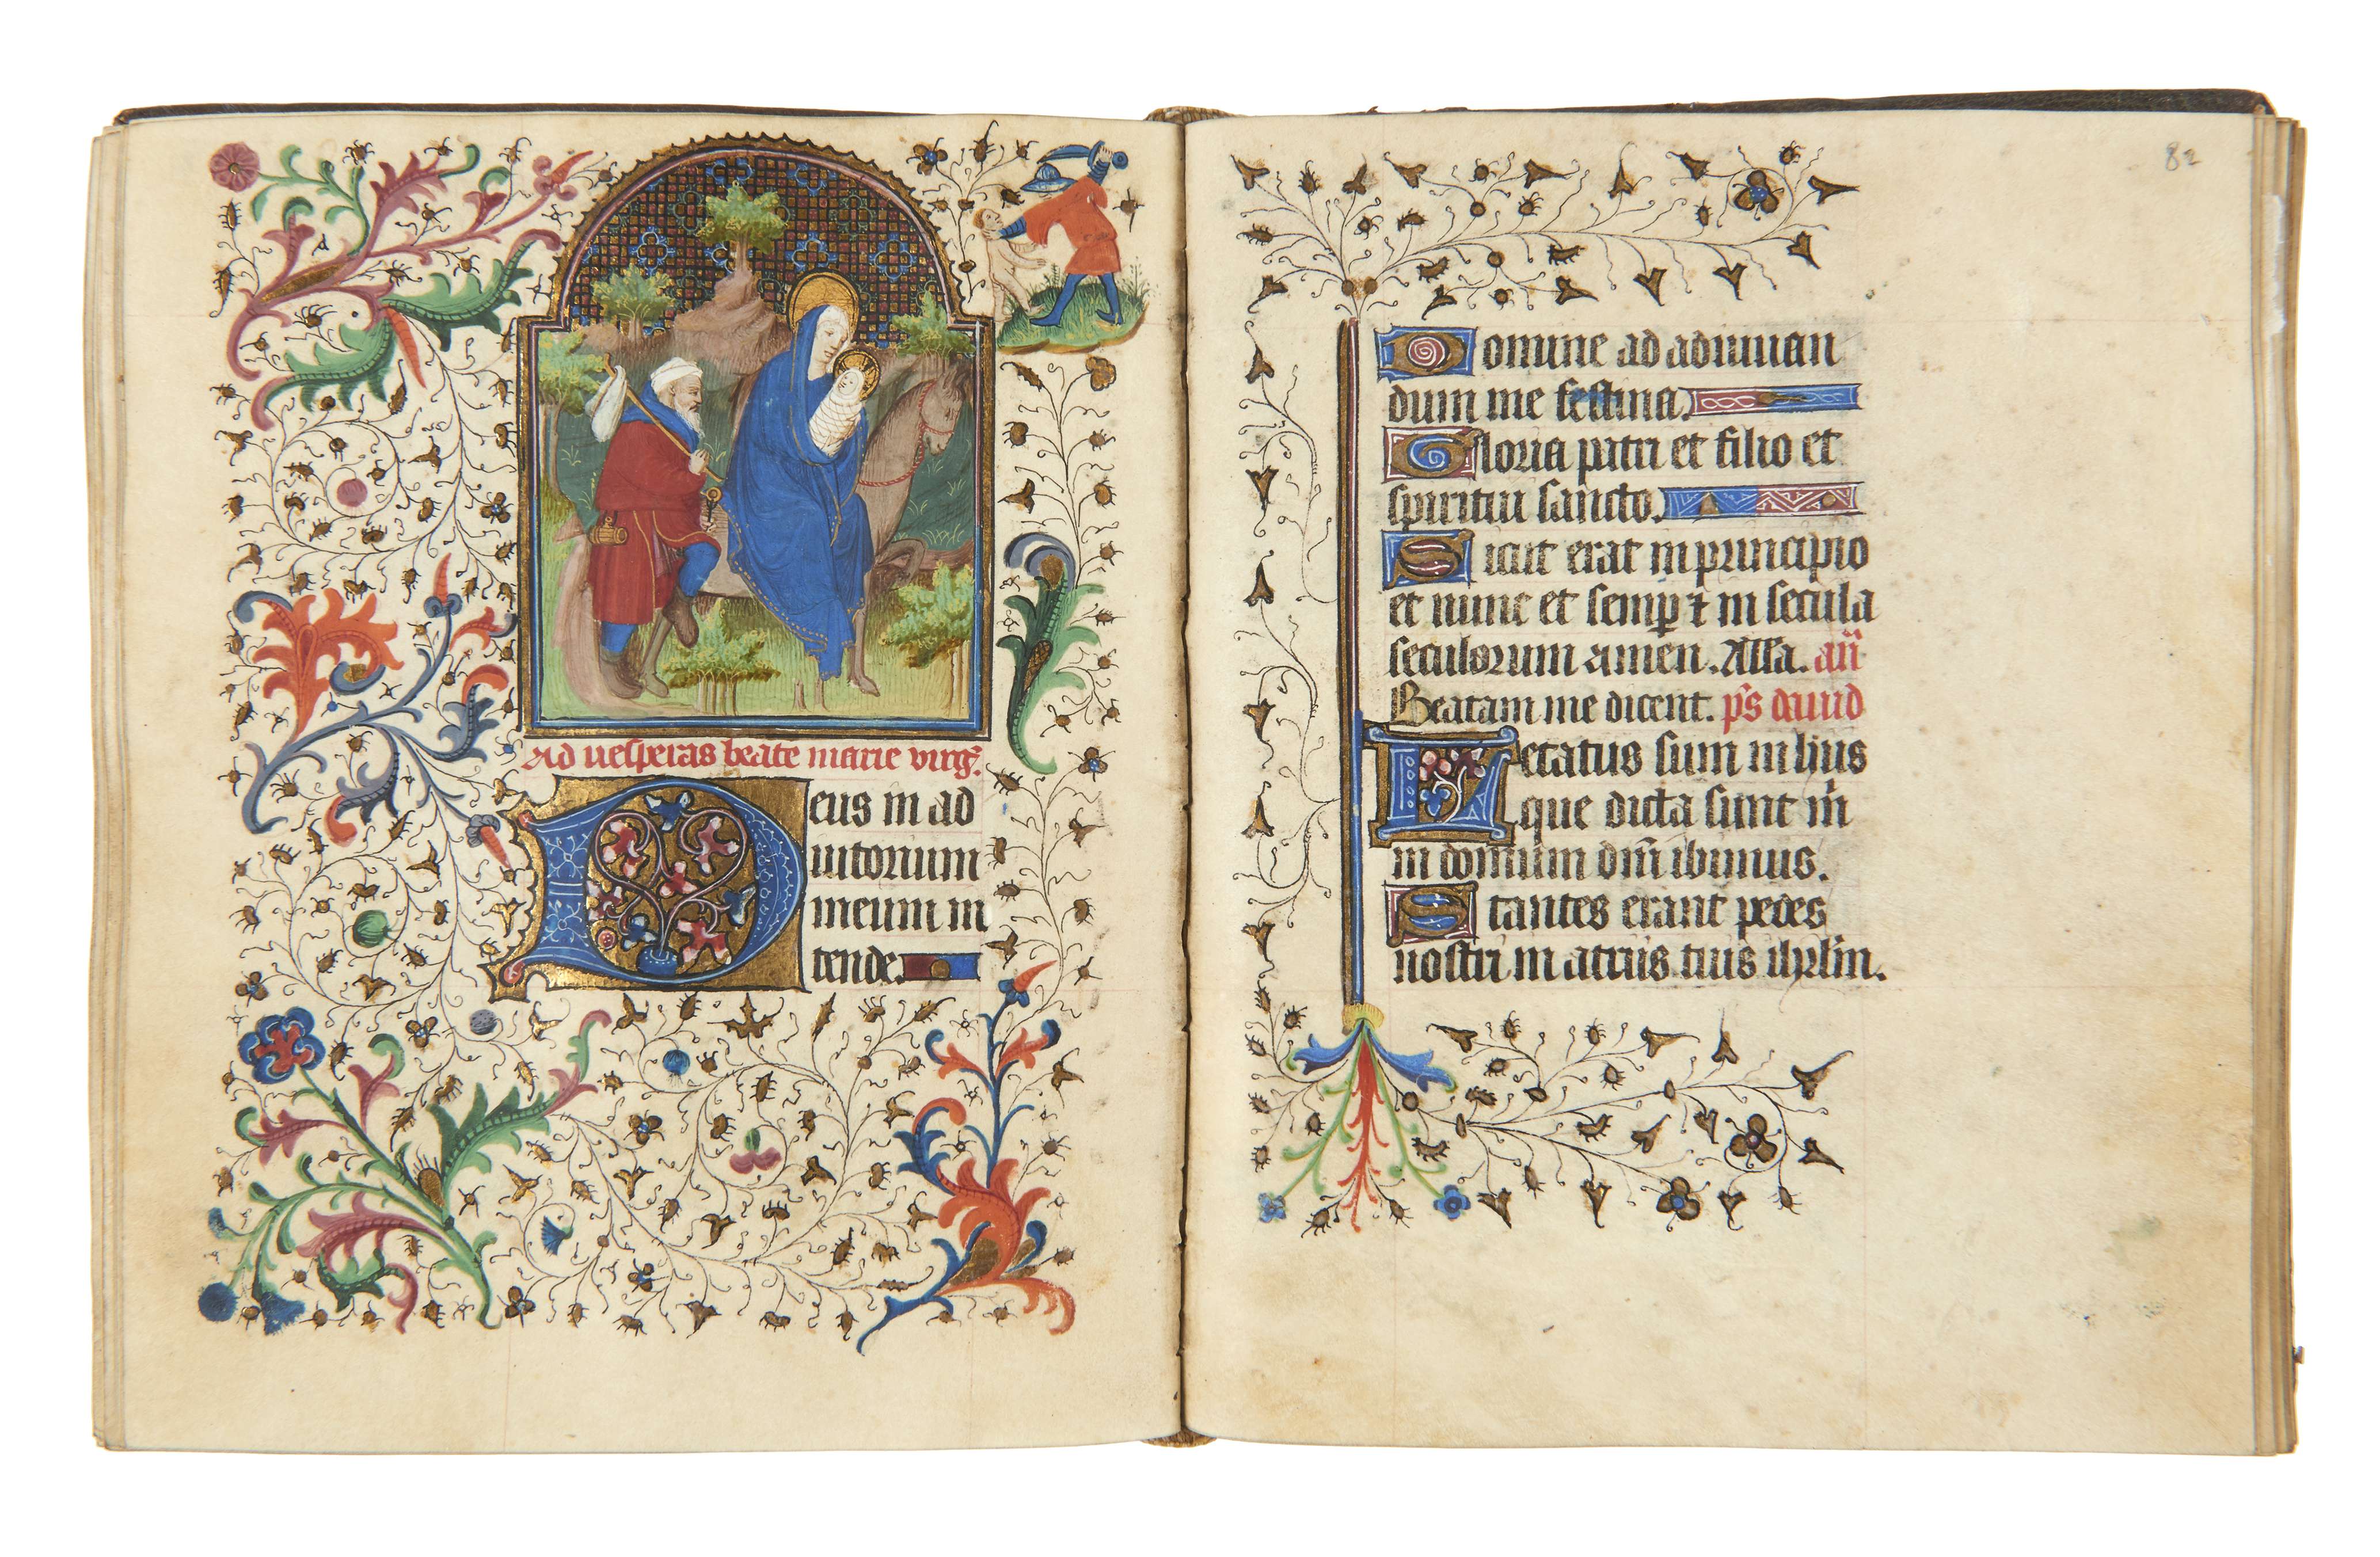 Ad uesperas beate marie uirg̃.
Deus in ad
iutorium
meum in
tende.
82
Domine ad adiuuan
dum me festina.
Gloria patri et filio et
spiritui sancto.
Sicut erat in principio
et nunc et semꝑ ⁊ in secula
seculorum amen. Alla. añ
Beatam me dicent. p̃s dauid
Letatus sum in hiis
que dicta sunt m̃
in domum dñi ibimus.
Stantes erant pedes
nostri in atriis tuis ihrl̃m.